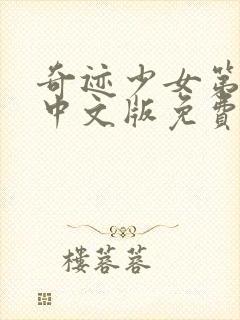 奇迹少女第
中文版免费
楼蓉蓉